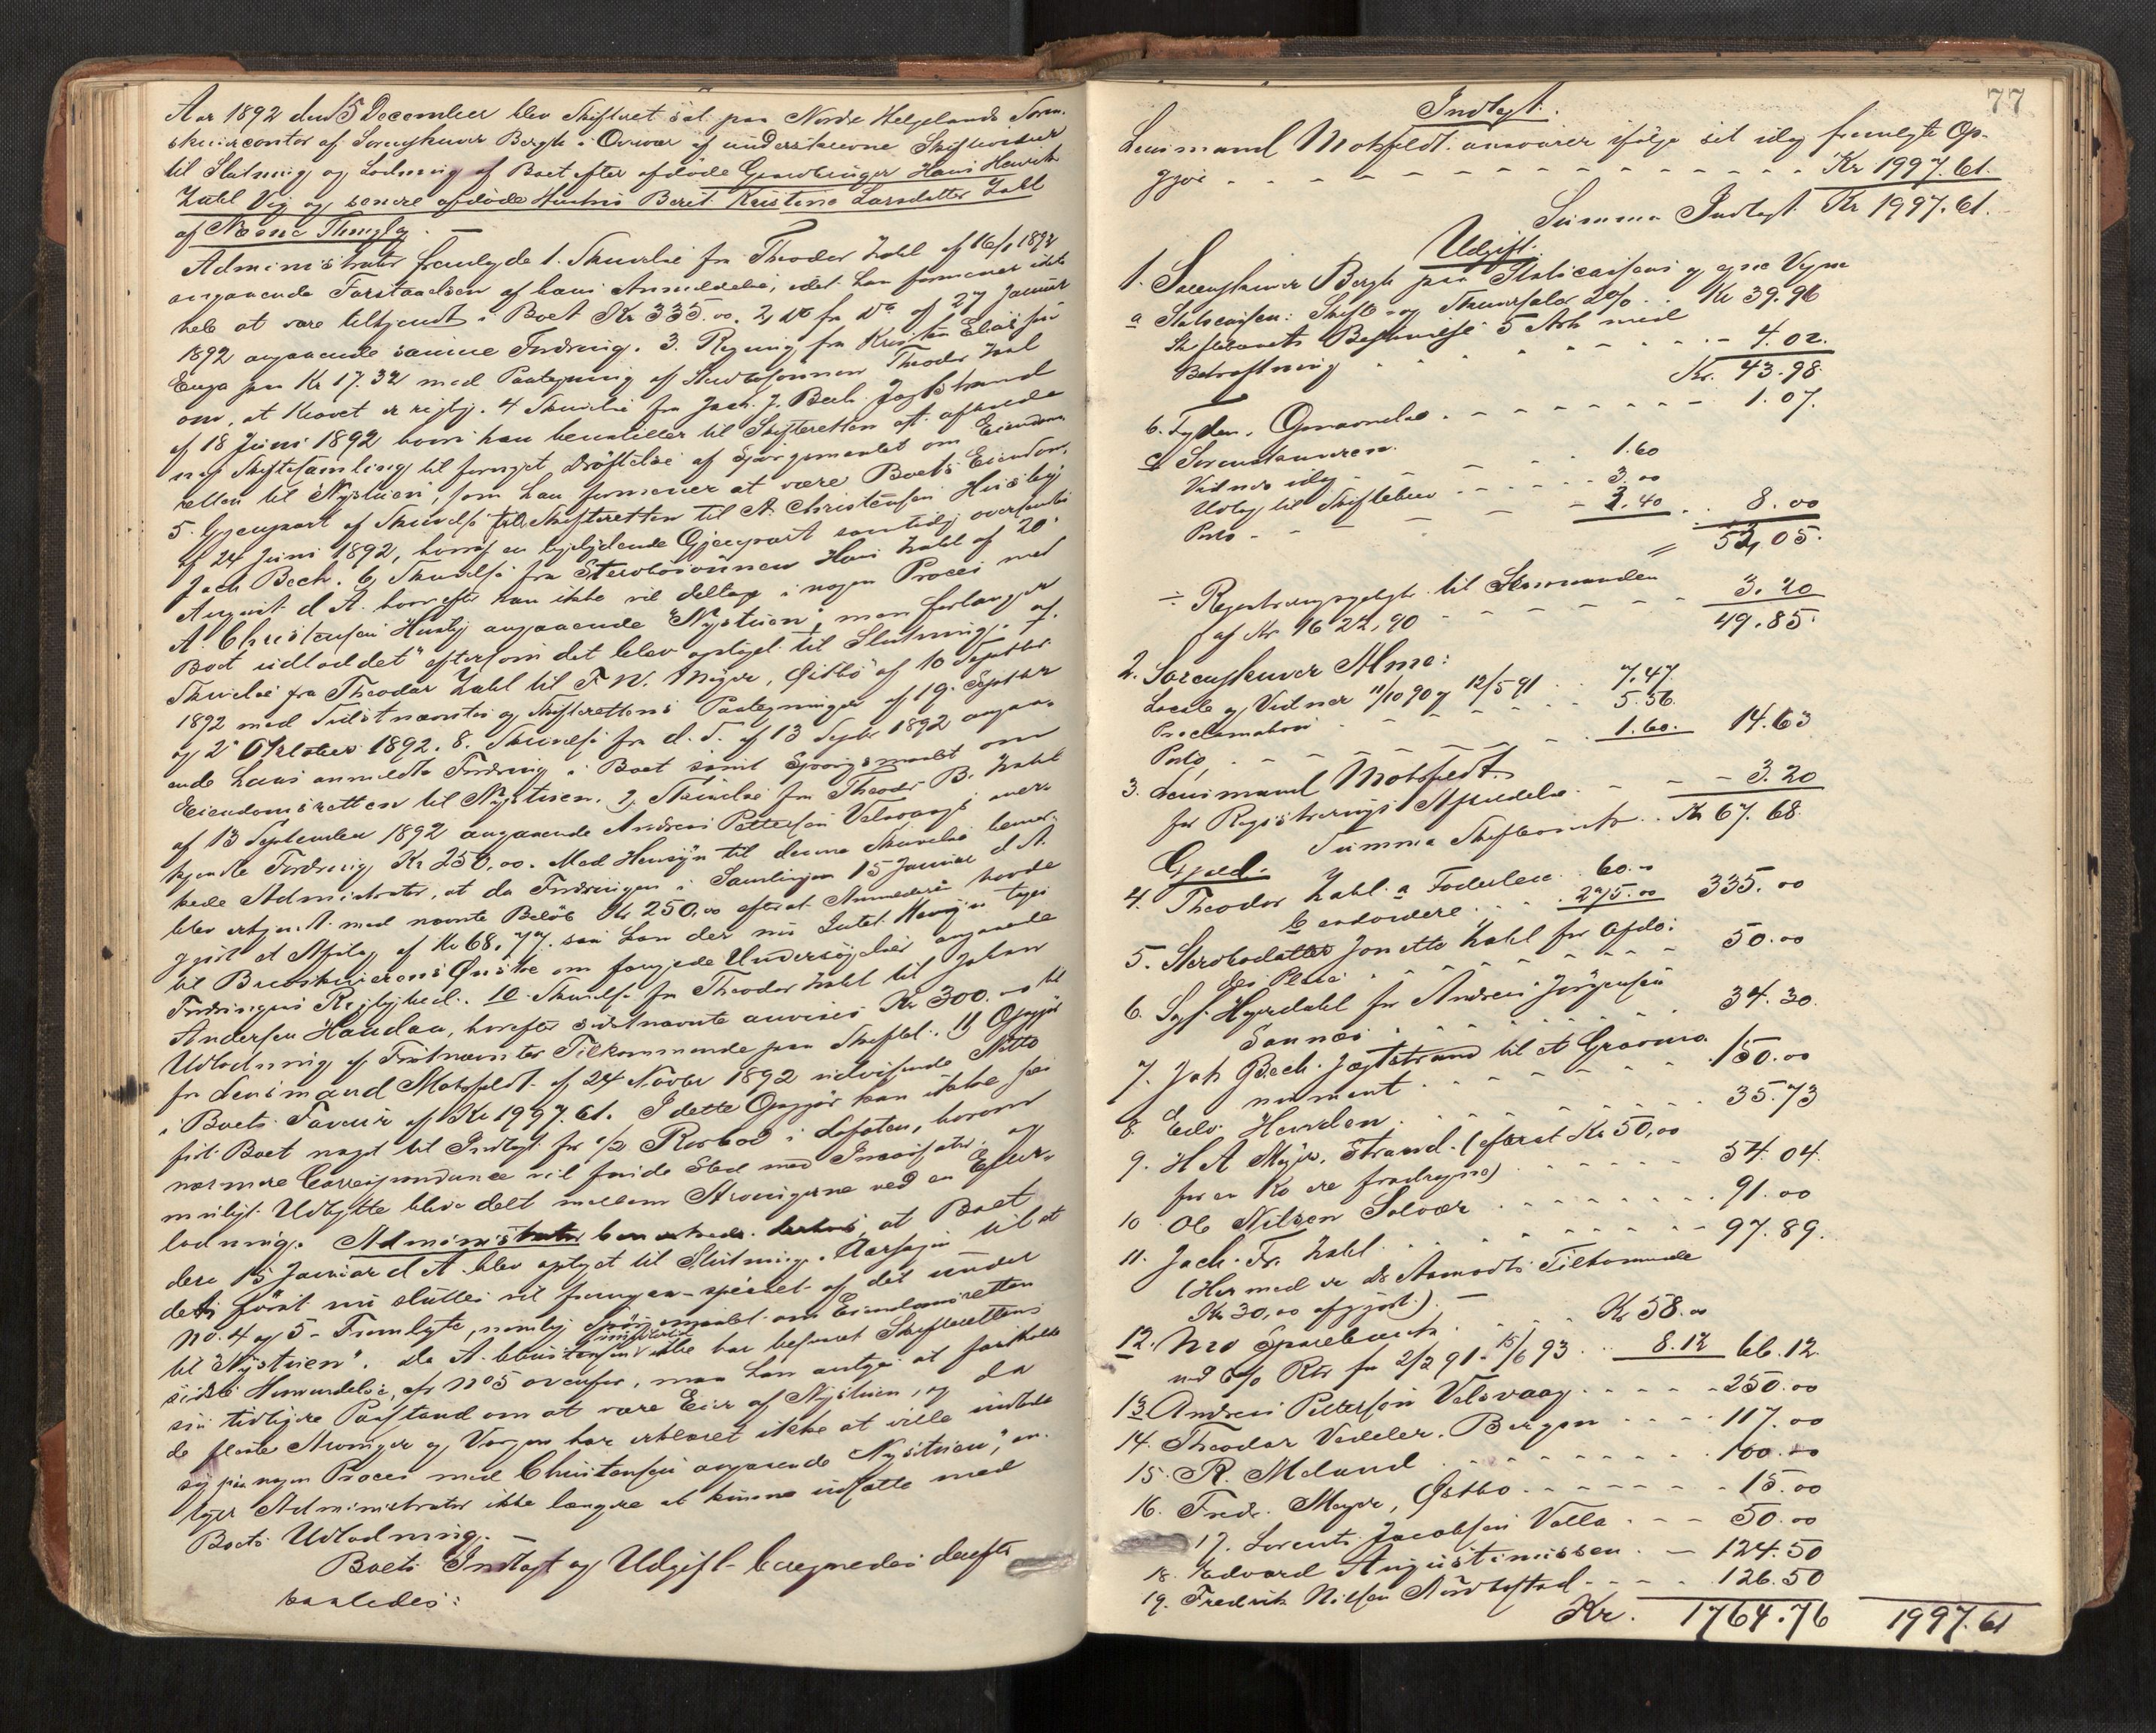 Aar 1892 den 15 December blev Skifteret sat paa Nordre Helgelands Soren-
skrivercontor af Sorenskriver Bergh i Overvær af underskrevne Skiftevidner
til Slutning og Lodning af Boet efter afdøde Gaardbruger Hans Henrik
Zahl Vig og senere afdøde Hustru Berit Kristine Larsdatter Zahl
af Næsne Thinglag. —
Administrator fremlagde 1. Skrivelse fra Theodor Zahl af 16/1 1892
angaaende Forstaaelsen af hans Anmeldelse, idet han formener ikke
hele at være tilkjendt i Boet Kr 335.00. 2, do fra do af 27 Januar
1892 angaaende samme Fordring. 3. Regning fra Kristen Eliassen
Enga paa Kr 17.32 med Paategning af Stervbosønnen Theodor Zahl
om, at Kravet er rigtig. 4 Skrivelse fra Jach. J. Bech Jægtstrand
af 18 Juni 1892 hvori han henstiller til Skifteretten at afholde
ny Skiftesamling til fornyet Drøftelse af Spørgsmaalet om Eiendoms
retten til "Nystuen", som han formener at være Boets Eiendom.
5. Gjenpart af Skrivelse fra Skifteretten til A. Christensen Husby
af 24 Juni 1892, hvoraf en ligelydende Gjenpart samtidig oversendtes
Jach Bech. 6, Skrivelse fra Stervbosønnen Hans Zahl af 20'
August d. A. hvorefter han ikke vil deltage i nogen Proces med
A. Christensen Husby angaaende "Nystuen", men forlanger
Boet udloddet eftersom det blev optaget til Slutning. 7.
Skrivelse fra Theodor Zahl til F. W. Meyer, Østbø af 10 Septbr
1892 med Sidstnævntes og Skifterettens Paategninger af 19. Septbr
og 2' Oktober 1892. 8. Skrivelse fra d. S. af 13 Septbr 1892 angaa-
ende hans anmeldte Fordring i Boet samt Spørgsmaalet om
Eiendomsretten til Nystuen. 9, Skrivelse fra Theodor B. Zahl
af 13 September 1892 angaaende Andreas Pettersen Valsvaags aner-
kjendte Fordring Kr 250,00. Med Hensyn til denne Skrivelse bemær-
kede Administrator, at da Fordringen i Samlingen 15 Januar d. A.
blev erkjendt med nævnte Beløb Kr 250,00 efterat Anmelderen havde
gjort et Afslag af Kr 68.77. saa kan der nu Intet Hensyn tages
til Brevskriverens Ønske om fornyede Undersøgelser angaaende
Fordringens Rigtighed. 10 Skrivelse fra Theodor Zahl til Johan
Andersen Handaa, hvorefter sidstnævnte anvises Kr 300.00 til
Udlodning af Førstnævntes Tilkommende paa Skiftet. 11 Opgjør
fra Lensmand Motzfeldt af 24 Novbr 1892 udvisende Netto
i Boets Faveur af Kr 1997.61. I dette Opgjør kan ikke sees
ført Boet noget til Indtægt for 1/2 Rorbod i Lofoten, hvorom
nærmere Correspondance vil finde Sted med Incassator og
muligt Udbytte blive delt mellem Arvingerne ved en Efter-
lodning. Administrator bemærkede derhos, at Boet
den 15 Januar d A. blev optaget til Slutning. Aarsagen til at
det først nu sluttes vil fremgaa specielt af det under
No. 4 og 5 Fremlagte, nemlig Spørgsmaalet om Eiendomsretten
til "Nystuen". Da A. Christensen ikke har besvaret Skifterettens
sidste Henvendelse, cfr No 5 ovenfor, maa han antages at fastholde
sin tidligere Paastand om at være Eier af Nystuen, og da
de fleste Arvinger og Værgen har erklæret ikke at ville indlade
sig paa nogen Proces med Christensen angaaende "Nystuen", an-
tager Administrator ikke længere at kunne udsætte med
Boets Udlodning. —
Boets Indtægt og Udgift beregnedes derefter
saaledes:
77
Indtægt.
Lensmand Motzfeldt ansvarer ifølge sit idag fremlagte Op-
gjør - - - - Kr 1997.61.
Summa Indtægt Kr 1997.61.
Udgift.
1. Sorenskriver Bergh paa Statscassens og egne Vegne
a Statscassen: Skifte- og Skriversalær 2% . . Kr 39.96
Skiftebrevets Beskrivelse 5 Ark med
Bekræftning - - - - 4.02.
Kr. 43.98.
b. Tyden, Gjenneværelse - - - - 1.07.
c Sorenskriveren.
Vidner idag - - - 1.60
Udlæg til Skiftebrev - - - 3.00
Porto - - - 3.40 . . 8.00
" 53,05.
÷ Registreringsgebyhr til Lensmanden
af Kr 1622,90 - - - 3.20
49.85.
2. Sorenskriver Alme:
Locale og Vidner 11/10 90 og 12/5 91 . . 7.47.
Proclamation - - - 5.56.
Porto - - - 1.60. 14.63
3. Lensmand Motzfeldt
for Registrerings Afholdelse - - - 3.20
Summa Skifteomk . . Kr 67.68.
Gjæld.
4. Theodor Zahl a Foderløn . . 60.00
b endvidere . . . 275.00 335.00
5. Stervbodatter Jonette Zahl for Afdø-
des Pleie - - - 50.00
6. Sagf. Hagerdahl for Andreas Jørgensen
Sannæs - - - 34.30.
7. Joh Bech. Jægtstrand til et Gravmo-
nument - - - 150.00
8. Edv. Hemden - - - 35.73
9. H A Meyer, Strand. (efterat Kr 50,00
for en Ko ere fradragne) - - - 54.04.
10 Ole Nilsen Solvær - - - 91.00
11. Jach. Fr. Zahl - - - 97.89.
(Hermed er Ds Aamodts Tilkommende
Kr 30,00 afgjort.) —
12. Næsne Sparebank - - - Kr 58.00
med 6% Rtr fra 2/2 91 - 15/6 93 . . 8.12 66.12.
13 Andreas Pettersen Valsvaag - - - 250.00
14. Theodor Vedeler. Bergen - - - 117.00
15. R. Meland - - - 100.00
16. Fredr. Meyer, Østbø - - - 15.00
17. Lorents Jacobsen Valla - - - 50.00
18. Edvard Augustinussen - - 124.50
19. Fredrik Nilsen - - - 126.50
Kr. 1764.76 1997.61